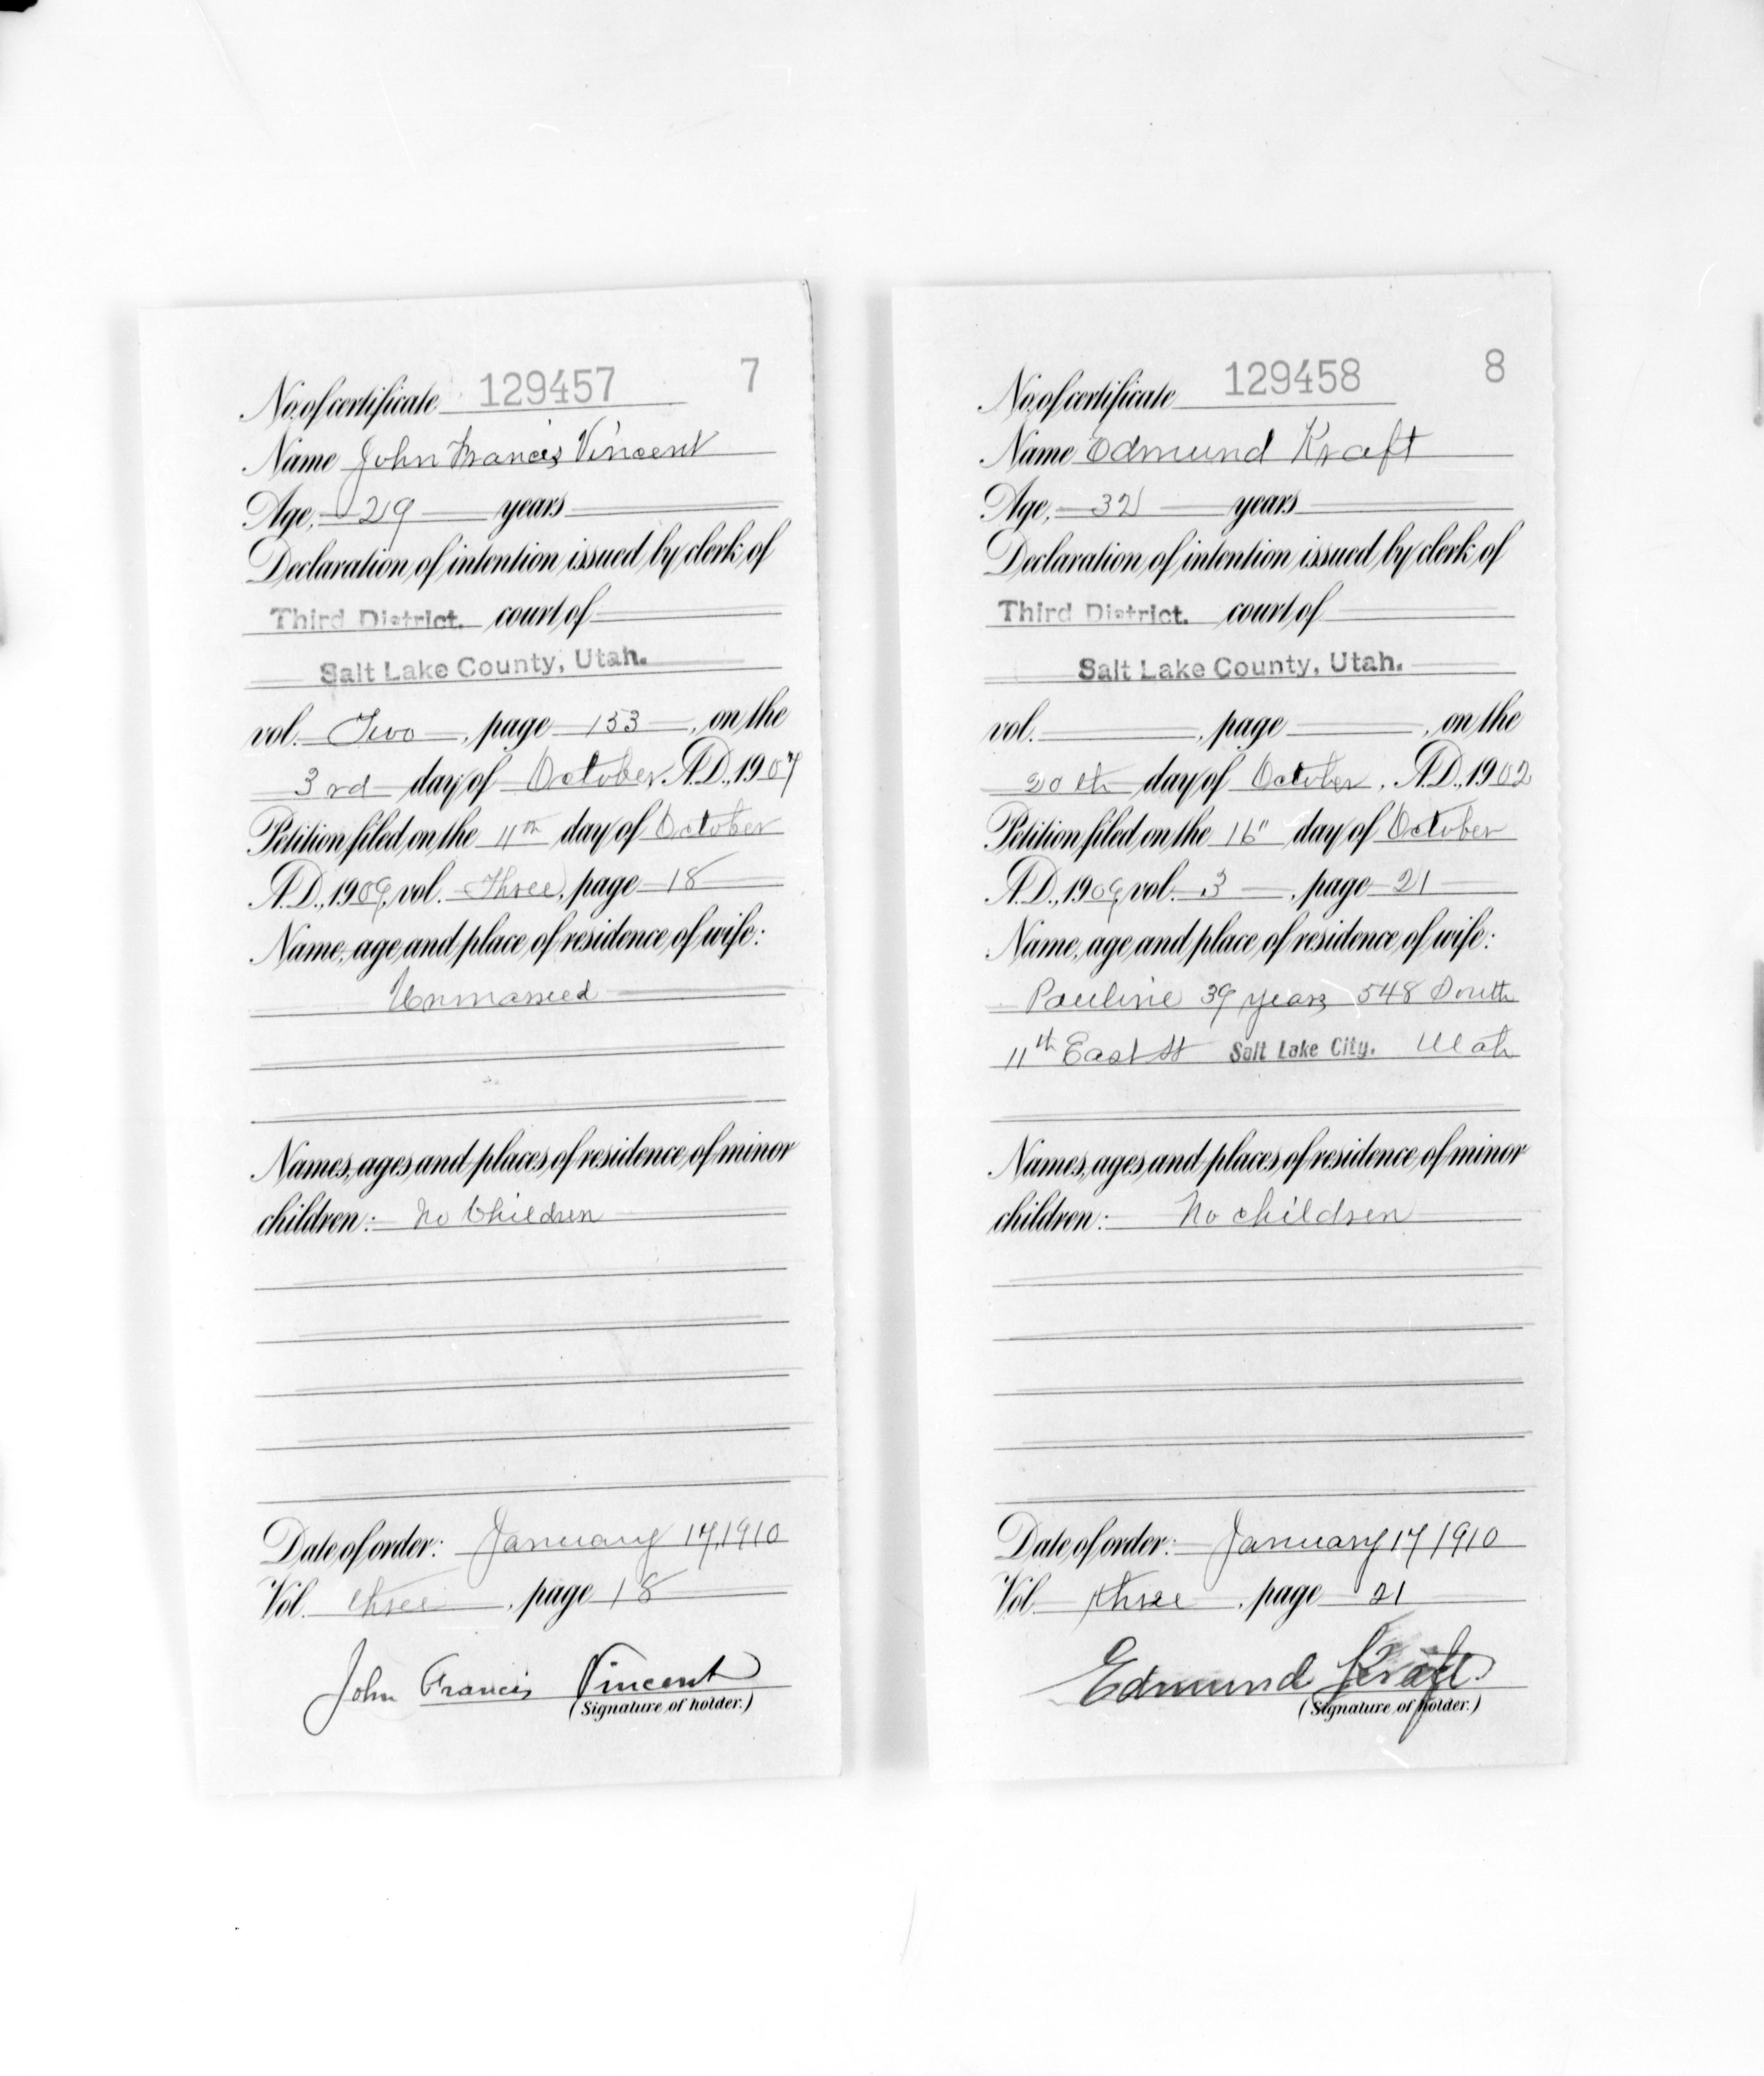 No. of certificate 129457 7
Name John Francis Vincent
Age, 29 years
Declaration of intention issued by clerk of
Third District. court of
Salt Lake County, Utah.
vol. Two, page 153, on the
3rd day of October, A.D., 1907
Petition filed on the 11th day of October
A.D., 1909, vol. Three, page 18
Name, age and place of residence of wife:
Unmarried
Names, ages and places of residence of minor
children: No Children
Date of order: January 17, 1910
Vol. three, page 18
John Francis Vincent
(Signature of holder.)
No. of certificate 129458 8
Name Edmund Kraft
Age, 32 years
Declaration of intention issued by clerk of
Third District. court of
Salt Lake County, Utah.
vol. , page , on the
20th day of October, A.D., 1902
Petition filed on the 16" day of October
A.D., 1909, vol. 3, page 21
Name, age and place of residence of wife:
Pauline 39 years 548 South
11th East St Salt Lake City. Utah
Names, ages and places of residence of minor
children: No children
Date of order: January 17 1910
Vol. three, page 21
Edmund Kraft
(Signature of holder.)